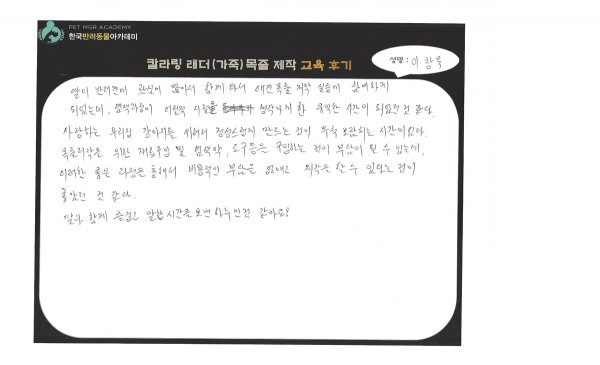 PET MGR ACADEMY
한국반려동물아카데미
칼라링 래더(가죽)목줄 제작 교육 후기
성명 : 이창욱
딸이 반려견에 관심이 많아서 함께 와서 애견목줄 제작 실습에 참여하게
되었는데, 염색과정이 어린적 시절을 생각나게 한 유익한 시간이 되었던 것 같다.
사랑하는 우리집 강아지를 위해서 정성스럽게 만드는 것이 무척 보람되는 시간이었다.
목줄제작을 위한 재료구입 및 염색약, 도구등을 구입하는 것이 부담이 될 수 있는데,
이러한 좋은 과정을 통해서 비용적인 부담을 없애고 제작을 할 수 있다는 것이
좋았던 것 같다.
딸과 함께 즐겁고 알찬 시간을 보낸 하루인것 같아요!